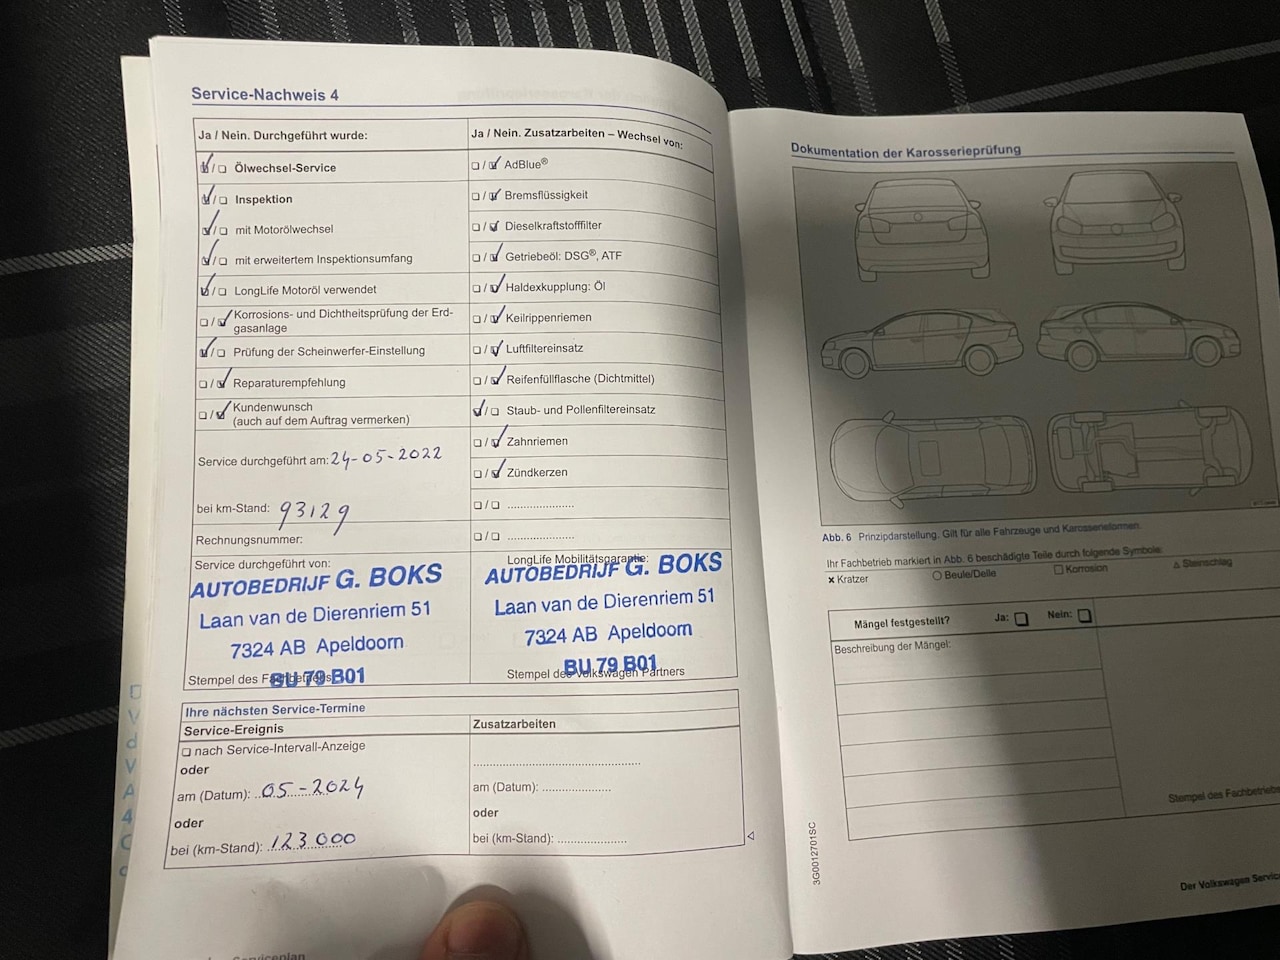 Service-Nachweis 4
Ja / Nein. Durchgeführt wurde:
Ölwechsel-Service
Inspektion
mit Motorölwechsel
mit erweitertem Inspektionsumfang
LongLife Motoröl verwendet
Korrosions- und Dichtheitsprüfung der Erd-
gasanlage
Prüfung der Scheinwerfer-Einstellung
Reparaturempfehlung
Kundenwunsch
(auch auf dem Auftrag vermerken)
Service durchgeführt am: 24-05-2022
bei km-Stand: 93129
Rechnungsnummer:
Service durchgeführt von:
AUTOBEDRIJF G. BOKS
Laan van de Dierenriem 51
7324 AB Apeldoorn
BU 79 B01
Stempel des Fachbetriebs
Ja / Nein. Zusatzarbeiten – Wechsel von:
AdBlue®
Bremsflüssigkeit
Dieselkraftstofffilter
Getriebeöl: DSG®, ATF
Haldexkupplung: Öl
Keilrippenriemen
Luftfiltereinsatz
Reifenfüllflasche (Dichtmittel)
Staub- und Pollenfiltereinsatz
Zahnriemen
Zündkerzen
LongLife Mobilitätsgarantie:
AUTOBEDRIJF G. BOKS
Laan van de Dierenriem 51
7324 AB Apeldoorn
BU 79 B01
Stempel des Volkswagen Partners
Ihre nächsten Service-Termine
Service-Ereignis
nach Service-Intervall-Anzeige
oder
am (Datum): 05-2024
oder
bei (km-Stand): 123000
Zusatzarbeiten
am (Datum):
oder
bei (km-Stand):
Serviceplan
Dokumentation der Karosserieprüfung
Abb. 6 Prinzipdarstellung. Gilt für alle Fahrzeuge und Karosserieformen.
Ihr Fachbetrieb markiert in Abb. 6 beschädigte Teile durch folgende Symbole:
Kratzer
Beule/Delle
Korrosion
Steinschlag
Mängel festgestellt? Ja: Nein:
Beschreibung der Mängel:
Stempel des Fachbetriebs
3G0012701SC
Der Volkswagen Service